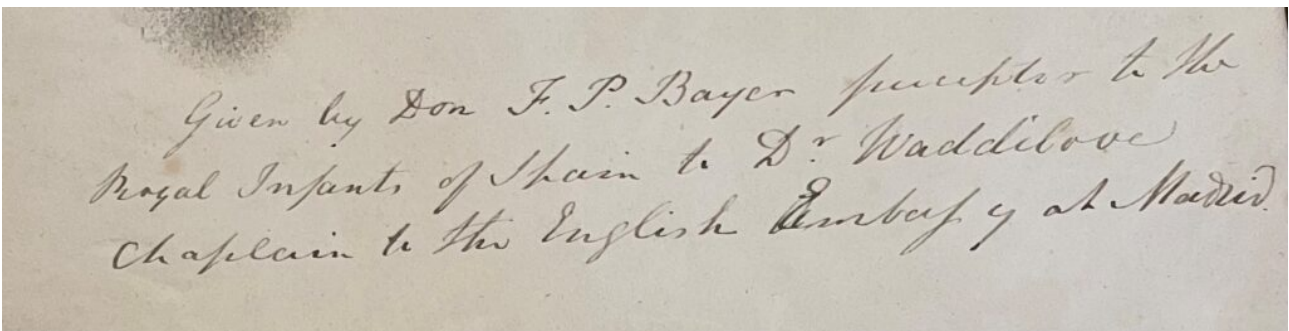 Given by Don F. P. Bayer preceptor to the
Royal Infants of Spain to Dr Waddilove
Chaplain to the English Embassy at Madrid.